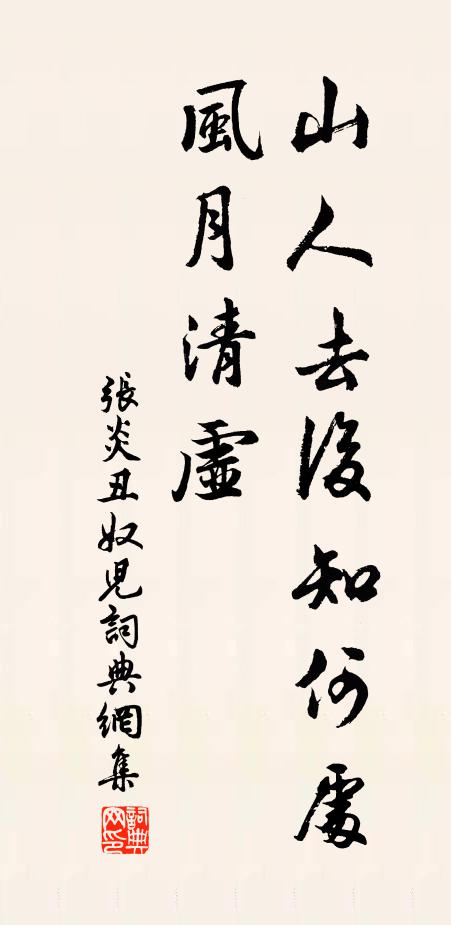 山人去後知何處
風月清虛
張炎丑奴兒詞典網集
詞典網印